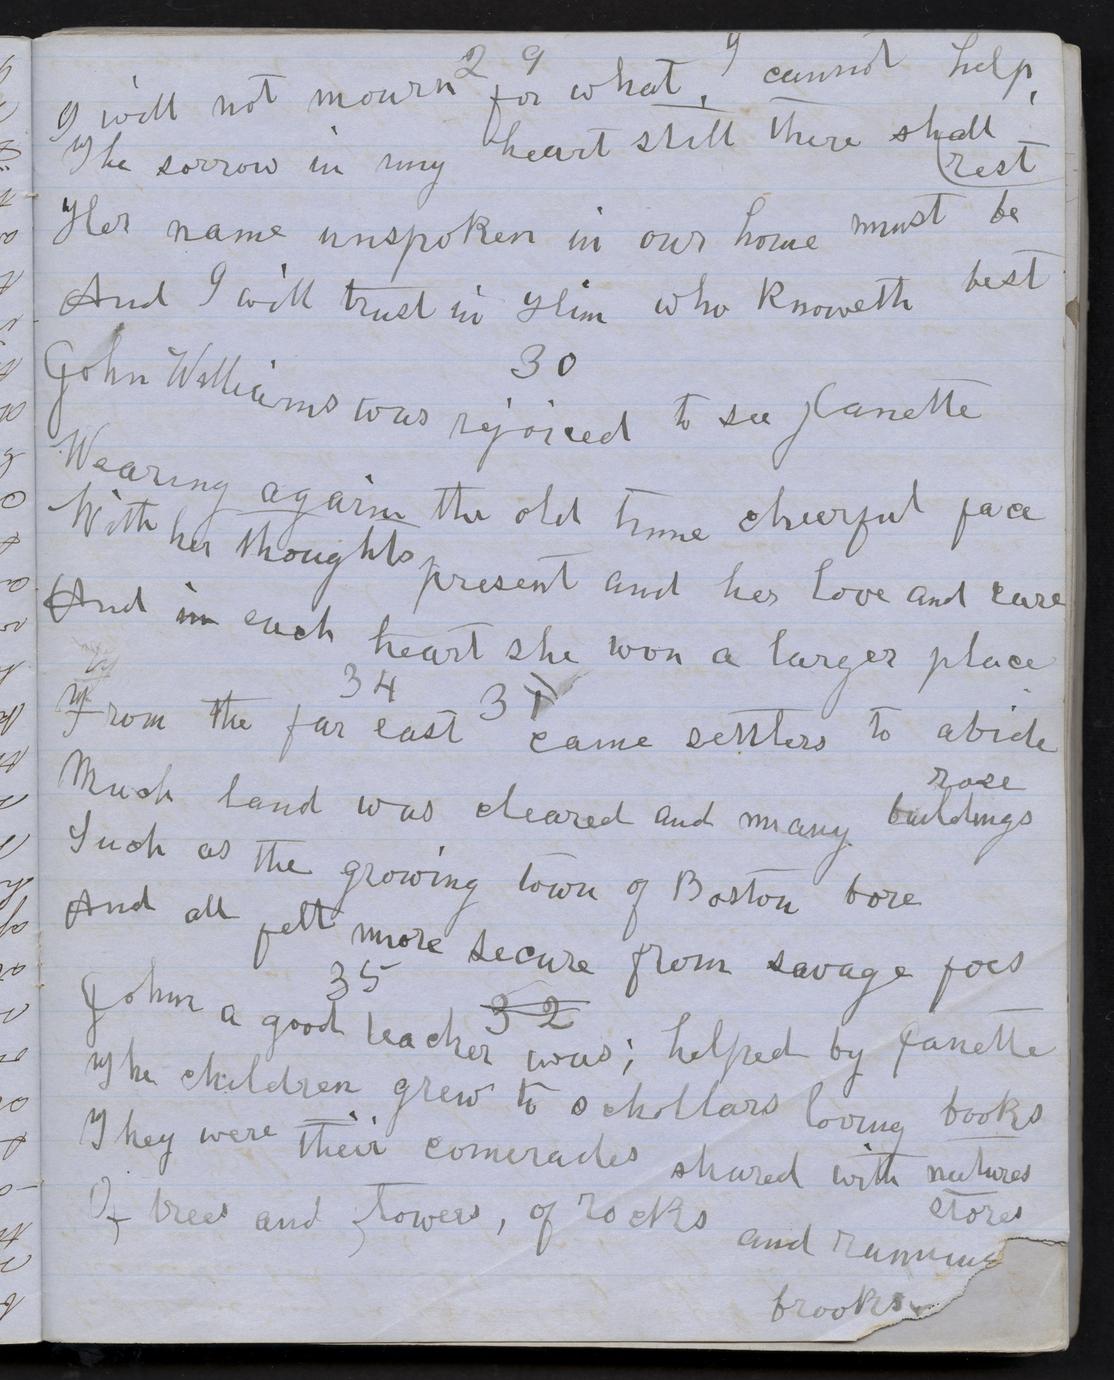 29
I will not mourn for what, I cannot help,
The sorrow in my heart still there shall
rest
Her name unspoken in our home must be
And I will trust in Him who knoweth best
30
John Williams was rejoiced to see Janette
Wearing again the old time cheerful face
With her thoughts present and her love and care
And in each heart she won a larger place
34 31
From the far east came settlers to abide
Much land was cleared and many buildings
rose
Such as the growing town of Boston bore
And all felt more secure from savage foes
35 32
John a good teacher was; helped by Janette
The children grew to schollars loving books
They were their comerades shared with natures
stores
Of trees and flowers, of rocks and running
brooks.